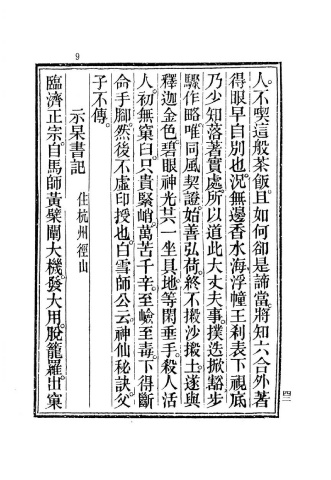 9
人。不喫這般茶飯。且如何卻是諦當。將知六合外著
得眼早自別也。況無邊香水海浮幢王剎表下視底
乃少知落著實處。所以道此大丈夫事。撲迭掀豁步
驟作略。唯同風契證。始善弘荷。終不搬沙搬土。遂與
釋迦金色碧眼神光。共一坐具地。等閑垂手。殺人活
人。初無窠臼。只貴緊峭。萬苦千辛。至嶮至毒。下得斷
命手腳。然後不虛印授也。白雪師公云。神仙祕訣。父
子不傳。
示杲書記 住杭州徑山
臨濟正宗。自馬師黃檗。闡大機。發大用。脫籠羅。出窠
四二